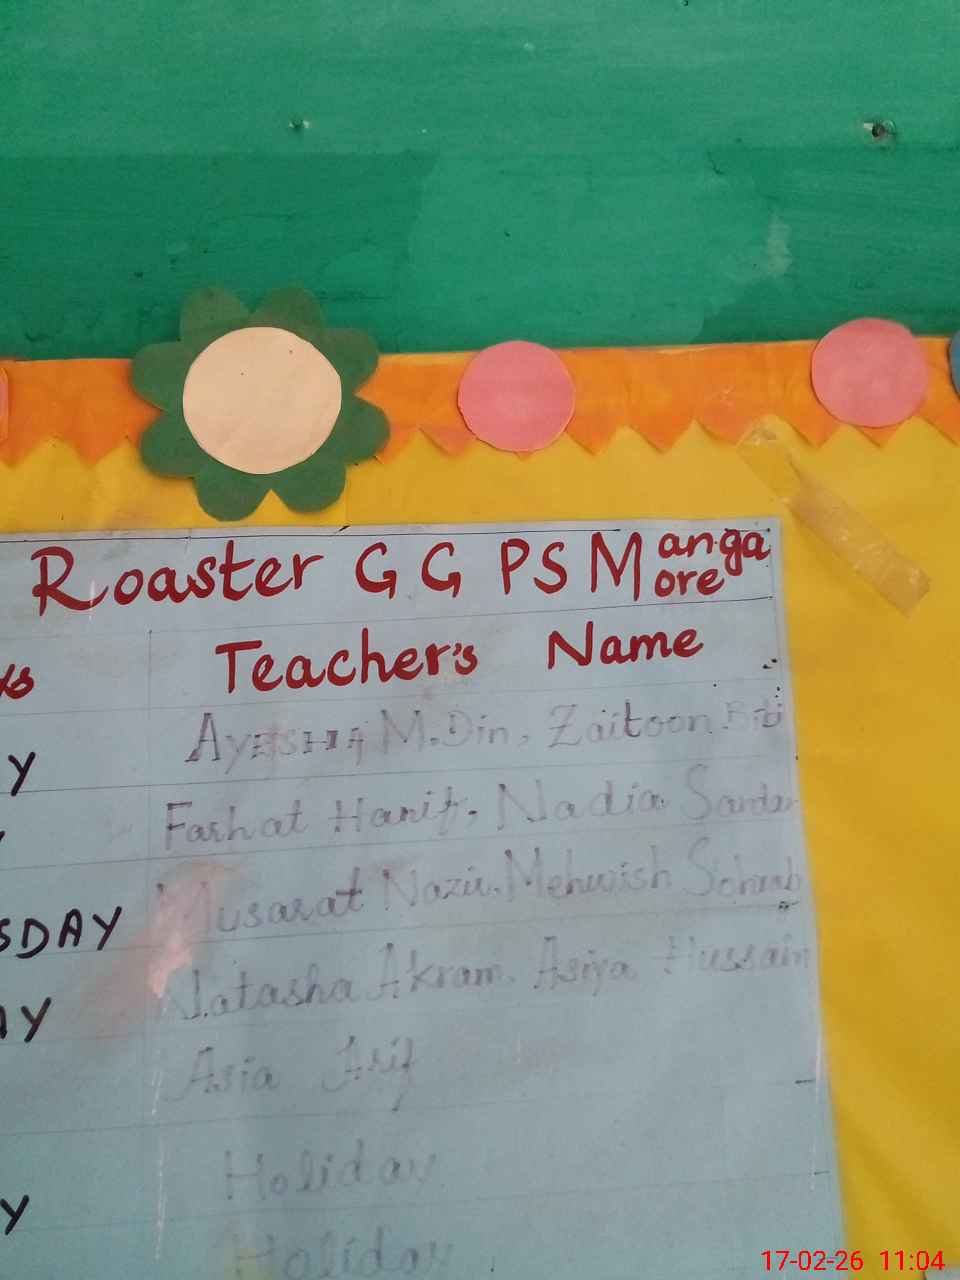 Roaster G G P S Manga more
Teacher's Name
AyESHA M.Din, Zaitoon Bibi
Y
Farhat Hanif, Nadia Sardar
Musarat Nazir, Mehwish Sohrab
SDAY
Natasha Akram, Asiya Hussain
AY
Asia Arif
Holiday
Y
Holiday
17-02-26 11:04